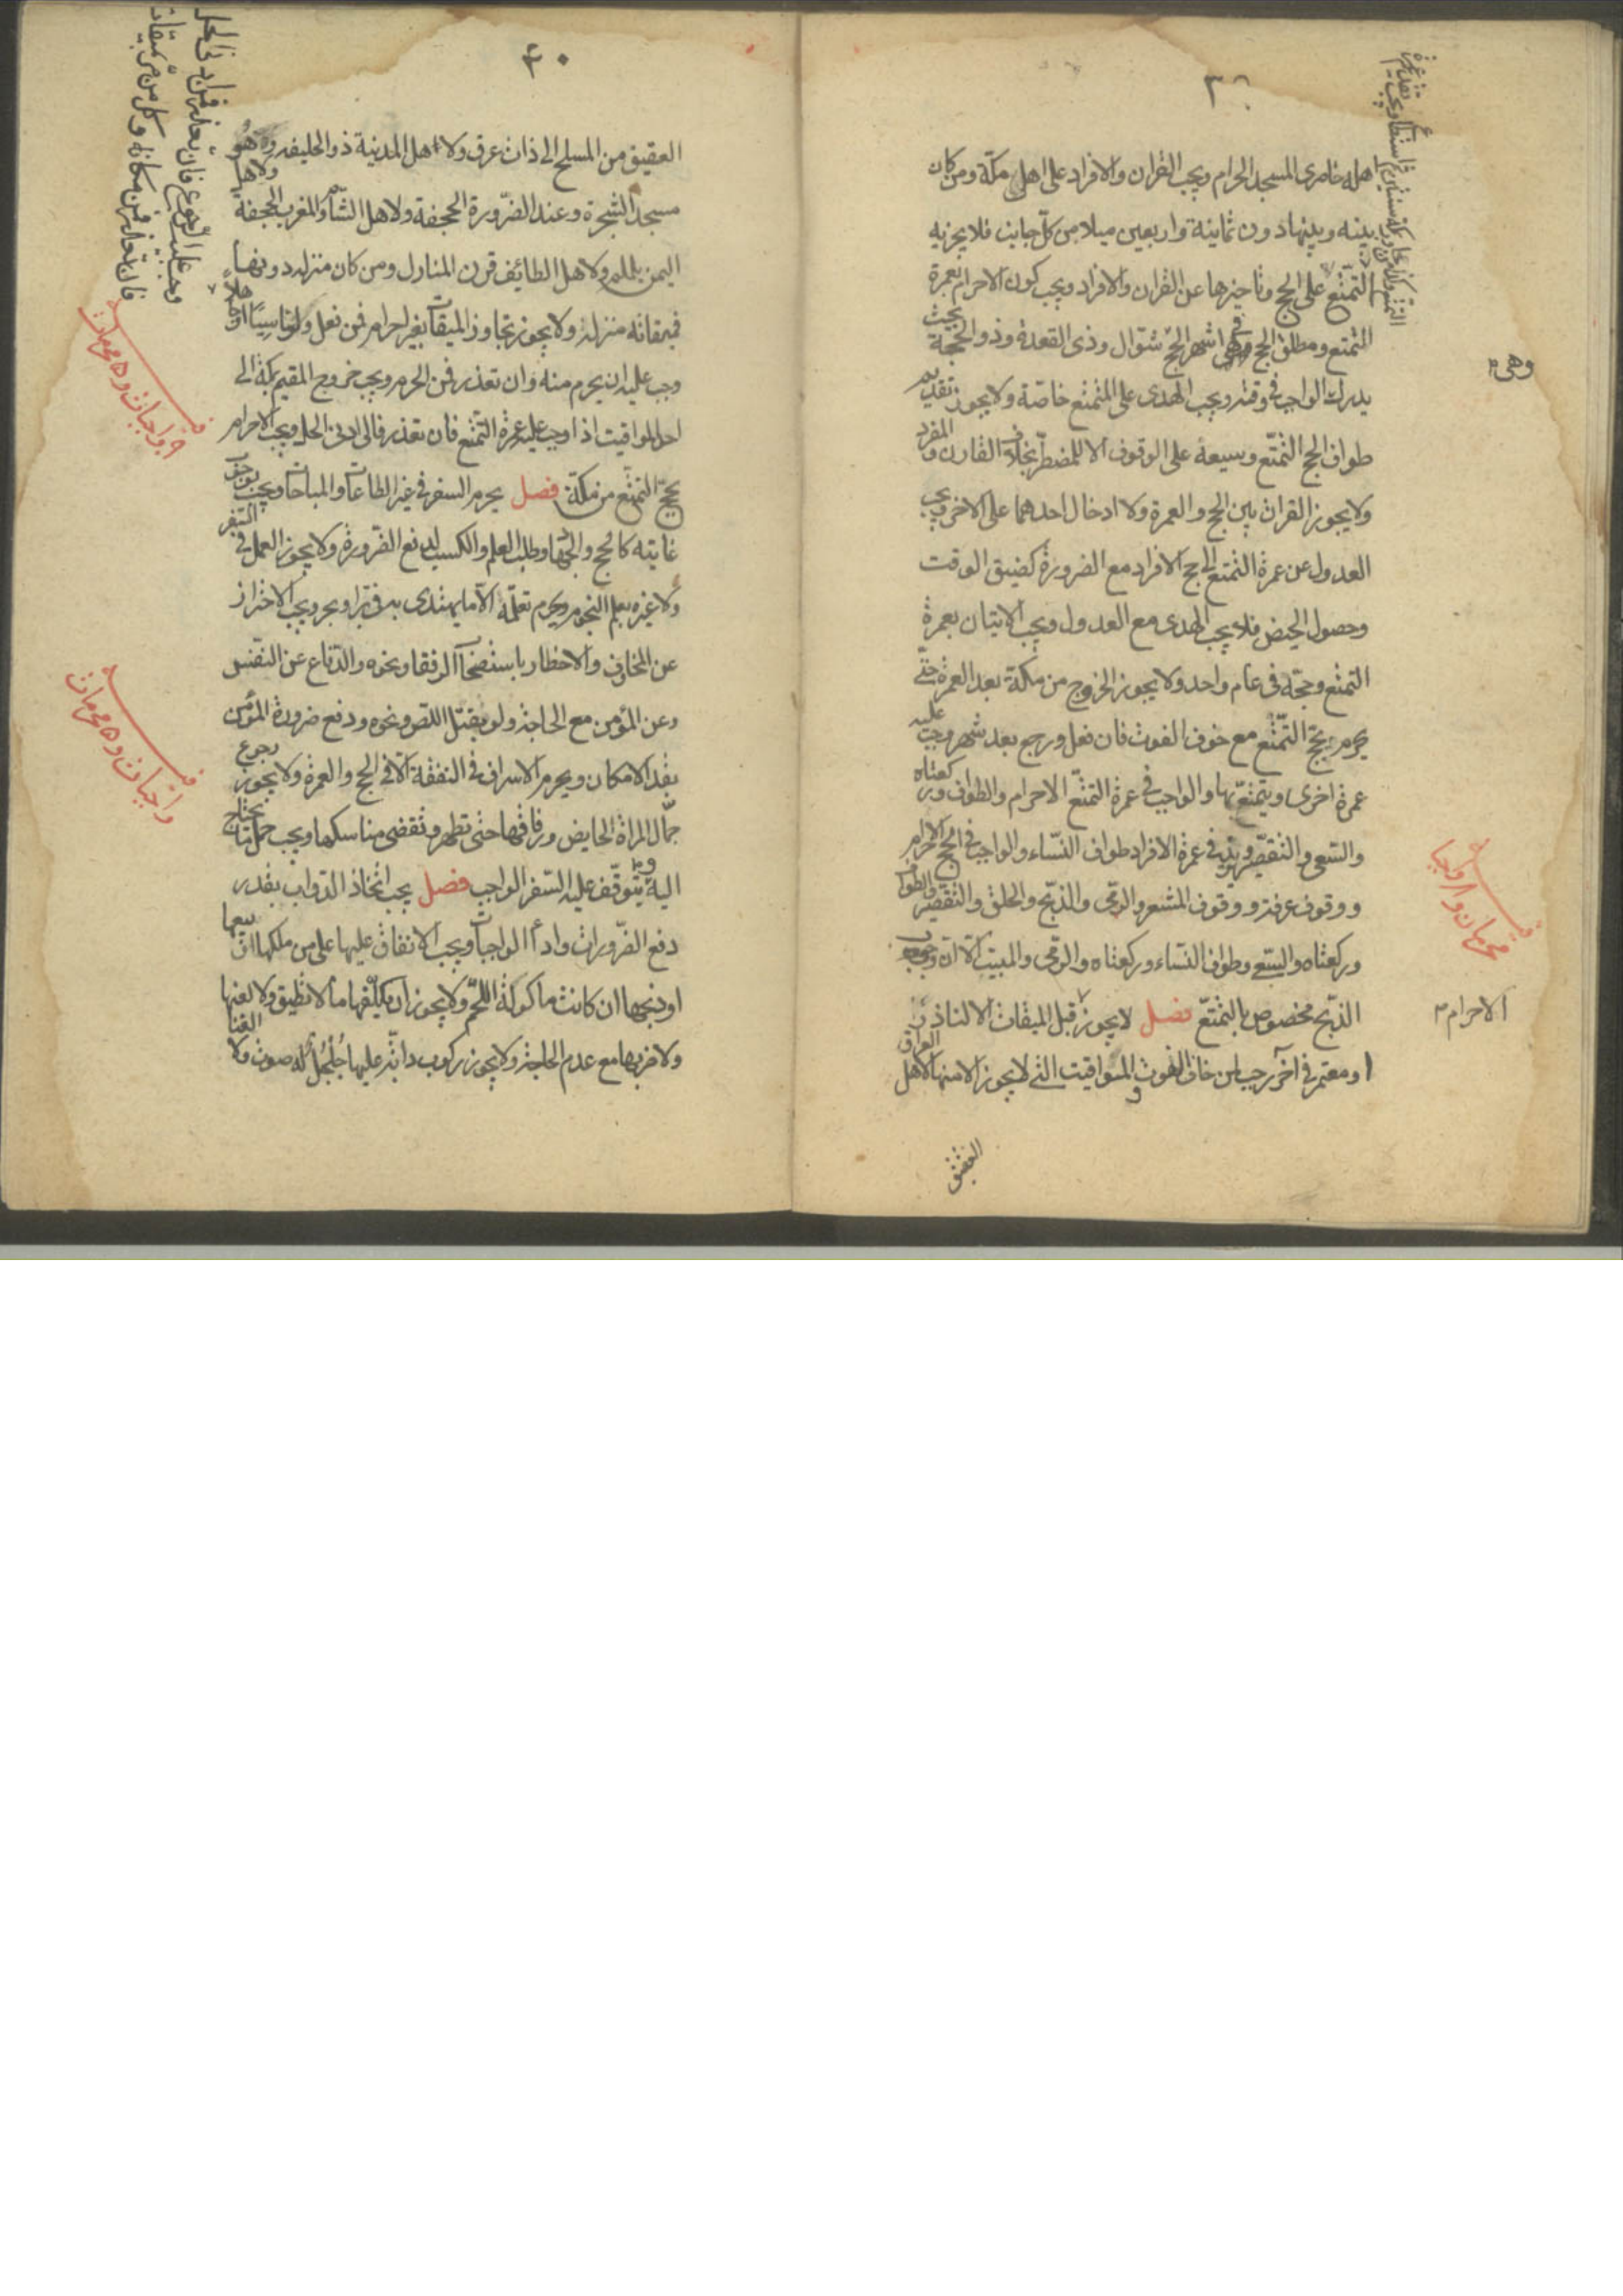 اهله حاضرى المسجد الحرام ويجب القران والافراد على اهل مكّة ومن كان
بينه وبينها دون ثمانية واربعين ميلا من كلّ جانب فلا يجزيه
التمتّع على الحج وتاخيرها عن القران والافراد ويجب كون الاحرام بعمرة
التمتع ومطلق الحج فى اشهر الحج شوّال وذى القعدة وذو الحجّة بحيث
يدرك الواجب فى وقته ويجب الهدى على المتمتع خاصّة ولا يجوز تقديم
طواف الحج التمتّع وسعيه على الوقوف الا للمضطرّ بخلاف القارن والمفرد
ولا يجوز القران بين الحج والعمرة ولا ادخال احدهما على الاخر ويجب
العدول عن عمرة التمتع الى حج الافراد مع الضرورة كضيق الوقت
وحصول الحيض فلا يجب الهدى مع العدول ويجب الاتيان بعمرة
التمتع وحجّه فى عام واحد ولا يجوز الخروج من مكّة بعد العمرة حتّى
يحرم بحجّ التمتّع مع خوف الفوت فان فعل ورجع بعد شهر وجب عليه
عمرة اخرى ويتمتّع بها والواجب فى عمرة التمتّع الاحرام والطواف وركعتاه
والسّعى والتقصير ويزيد فى عمرة الافراد طواف النّساء والواجب فى الحج الاحرام
ووقوف عرفة ووقوف المشعر والرّمى والذبّح والحلق والتقصير والطواف
وركعتاه والسّعى وطواف النّساء وركعتاه والرّمى والمبيت الا انّ وجوب
الذبّح مخصوص بالتمتّع فصل لا يجوز قبل الميقات الا لناذر
او معتمر فى آخر رجب لمن خاف الفوت والمواقيت التى لا يجوز الا منها لاهل العراق
العقيق
وهى
الاحرام
محرمان واجبا
٤٠
العقيق من المسلح الى ذات عرق ولاهل المدينة ذو الحليفه وهو
مسجد الشجرة وعند الضّرورة الجحفة ولاهل الشام والمغرب الجحفة ولاهل
اليمن يلملم ولاهل الطائف قرن المنازل ومن كان منزله دونها
فميقاته منزله ولا يجوز تجاوز الميقات بغير احرام فمن فعل ولو ناسيًا او جاهلاً
وجب عليه ان يحرم منه وان تعذر فمن الحرم ويجب خروج المقيم بمكة الى
احد المواقيت اذا وجب عليه عمرة التمتّع فان تعذر فالى ادنى الحل ويجب الاحرام
بحجّ التمتّع من مكّة فصل يحرم السفر فى غير الطاعات والمباحات ويجب
غايته كالحج والجهاد وطلب العلم والكسب لدفع الضّرورة ولا يجوز العمل فى السّفر
ولا غيره بعلم النجوم ويحرم تعلّمه الاّ ما يهتدى به فى برّ او بحر ويجب الاحتراز
عن المخاوف والاخطار باستصحاب الرفقاء ونحوه والدّفاع عن النفس
وعن المؤمن مع الحاجة ولو بقتل اللص ونحوه ودفع ضرورة المؤمن
بقدر الامكان ويحرم الاسراف فى النفقة الاّ فى الحج والعمرة ولا يجوز رجوع
جمّال المراة الحايض ورفاقها حتى تطهر وتقضى مناسكها ويجب حمل ما يحتاج
اليه ويتوقّف عليه السّفر الواجب فصل يجب اتّخاذ الدّواب بقدر
دفع الضّرورات واداء الواجبات ويجب الانفاق عليها على من ملكها او بيعها
او ذبحها ان كانت ماكولة اللّحم ولا يجوز ان يكلّفها ما لا تطيق ولا لعنها
ولا ضربها مع عدم الحاجة ولا يجوز ركوب دابّة عليها جُلْجُل له صوت ولا الغنا
وجب عليه الرجوع فان تعذر فمن ادنى الحل
فان تعذر فمن مكانه وكل من مرّ بميقات
واجبات ٥ محرمات
واجبات ٥ محرمات